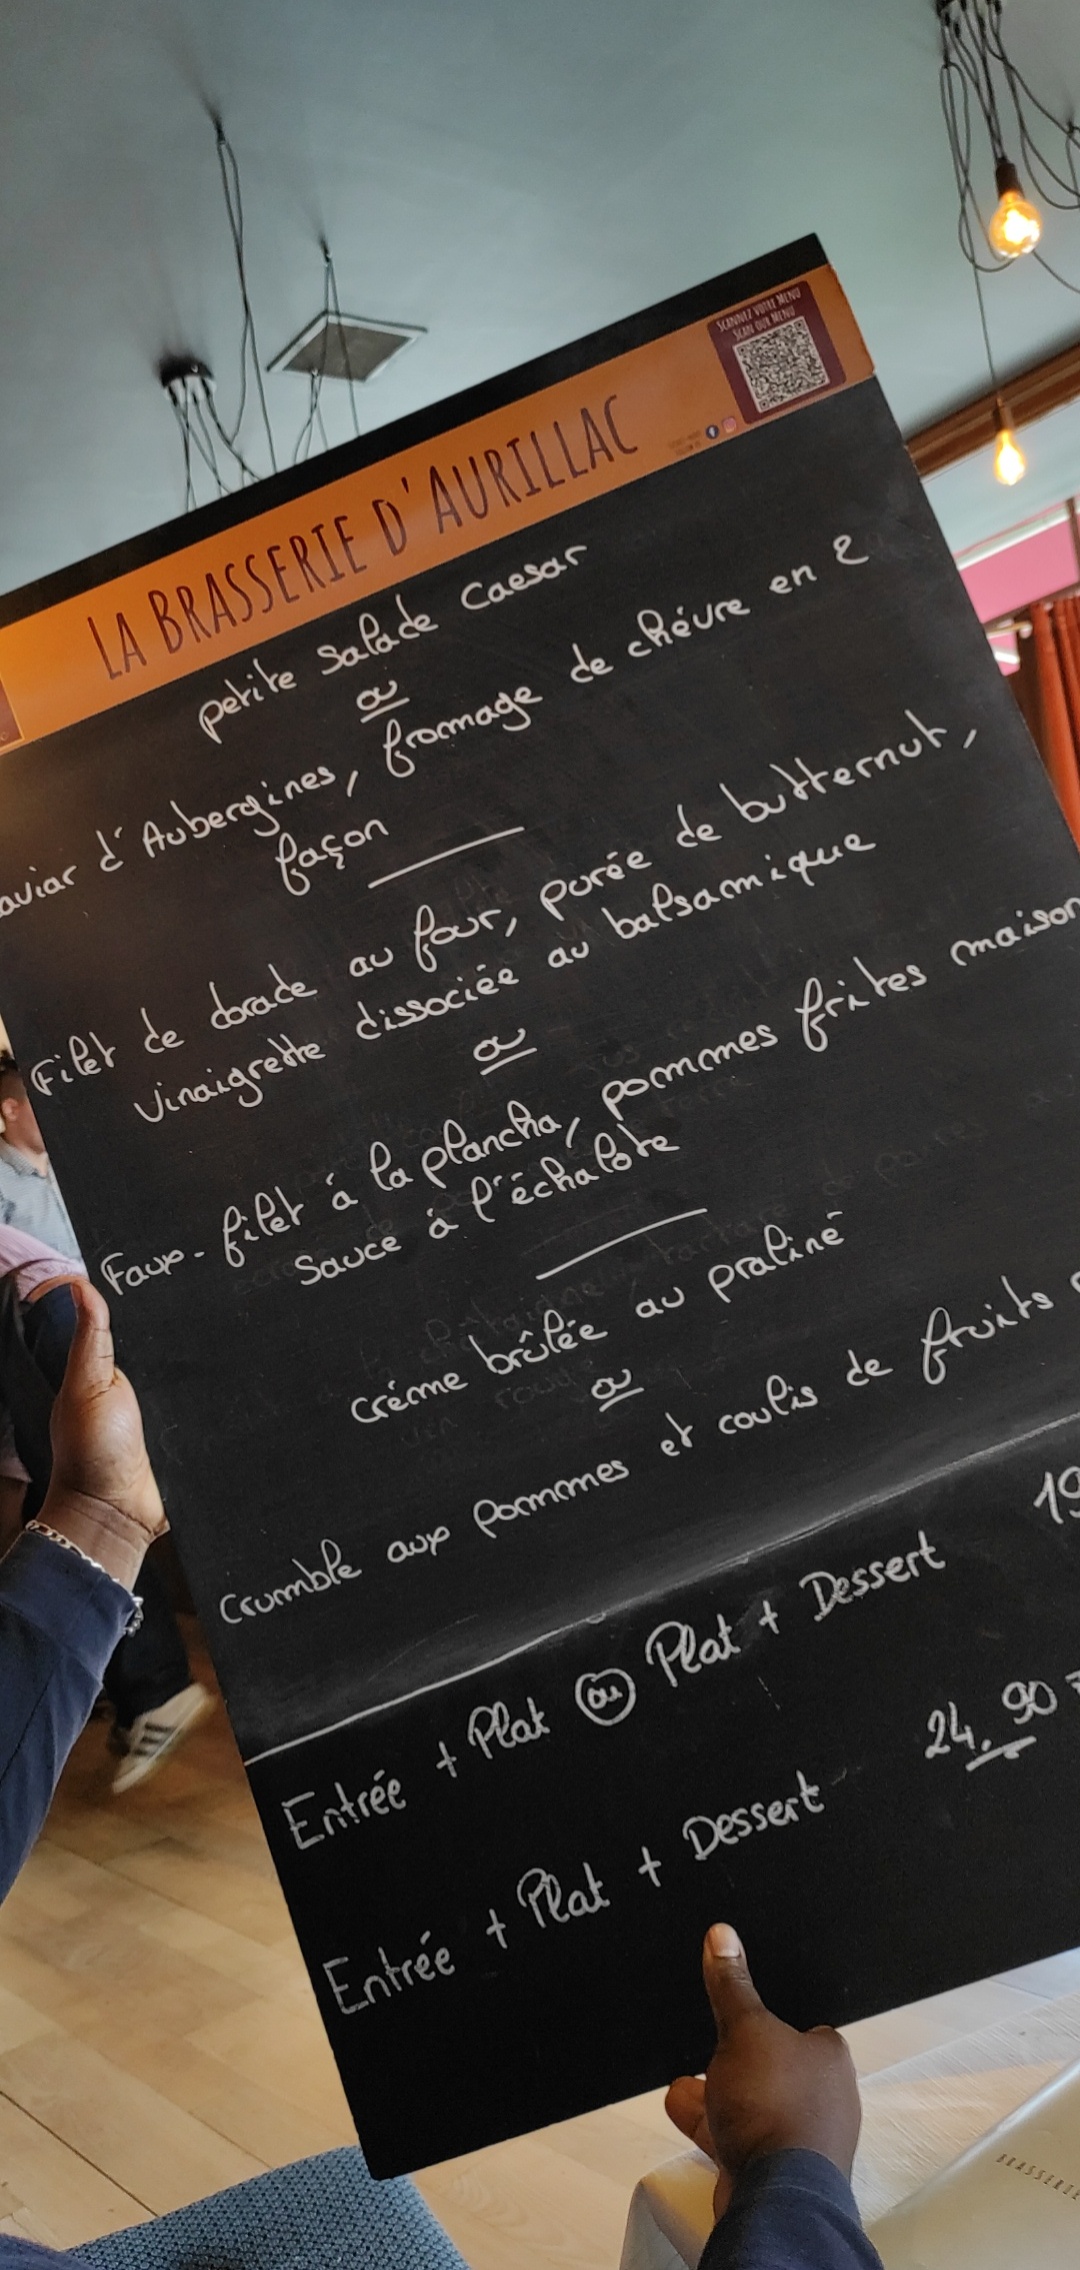 SCANNEZ VOTRE MENU
SCAN OUR MENU
LA BRASSERIE D'AURILLAC
petite Salade Caesar
ou
aviar d'Aubergines, fromage de chévre en 2
façon
Filet de dorade au four, purée de butternut,
Vinaigrette dissociée au balsamique
ou
Faux-filet à la plancha, pommes frites maison
Sauce à l'échalote
Crème brûlée au praliné
ou
Crumble aux pommes et coulis de fruits
Entrée + Plat ou Plat + Dessert 19
Entrée + Plat + Dessert 24.90
BRASSERIE